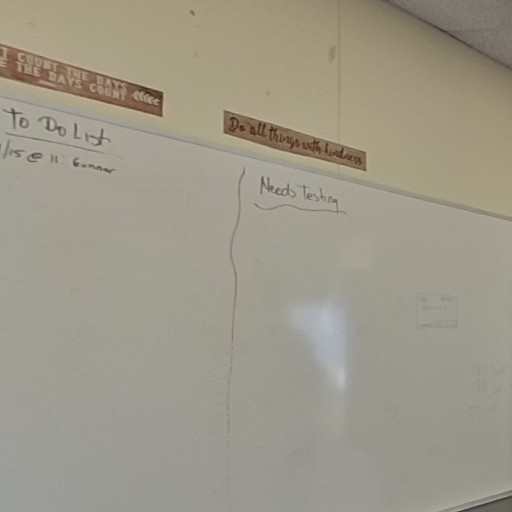 T COUNT THE DAYS
E THE DAYS COUNT
Do all things with kindness
To Do List
/15 @ 11:
Needs Testing